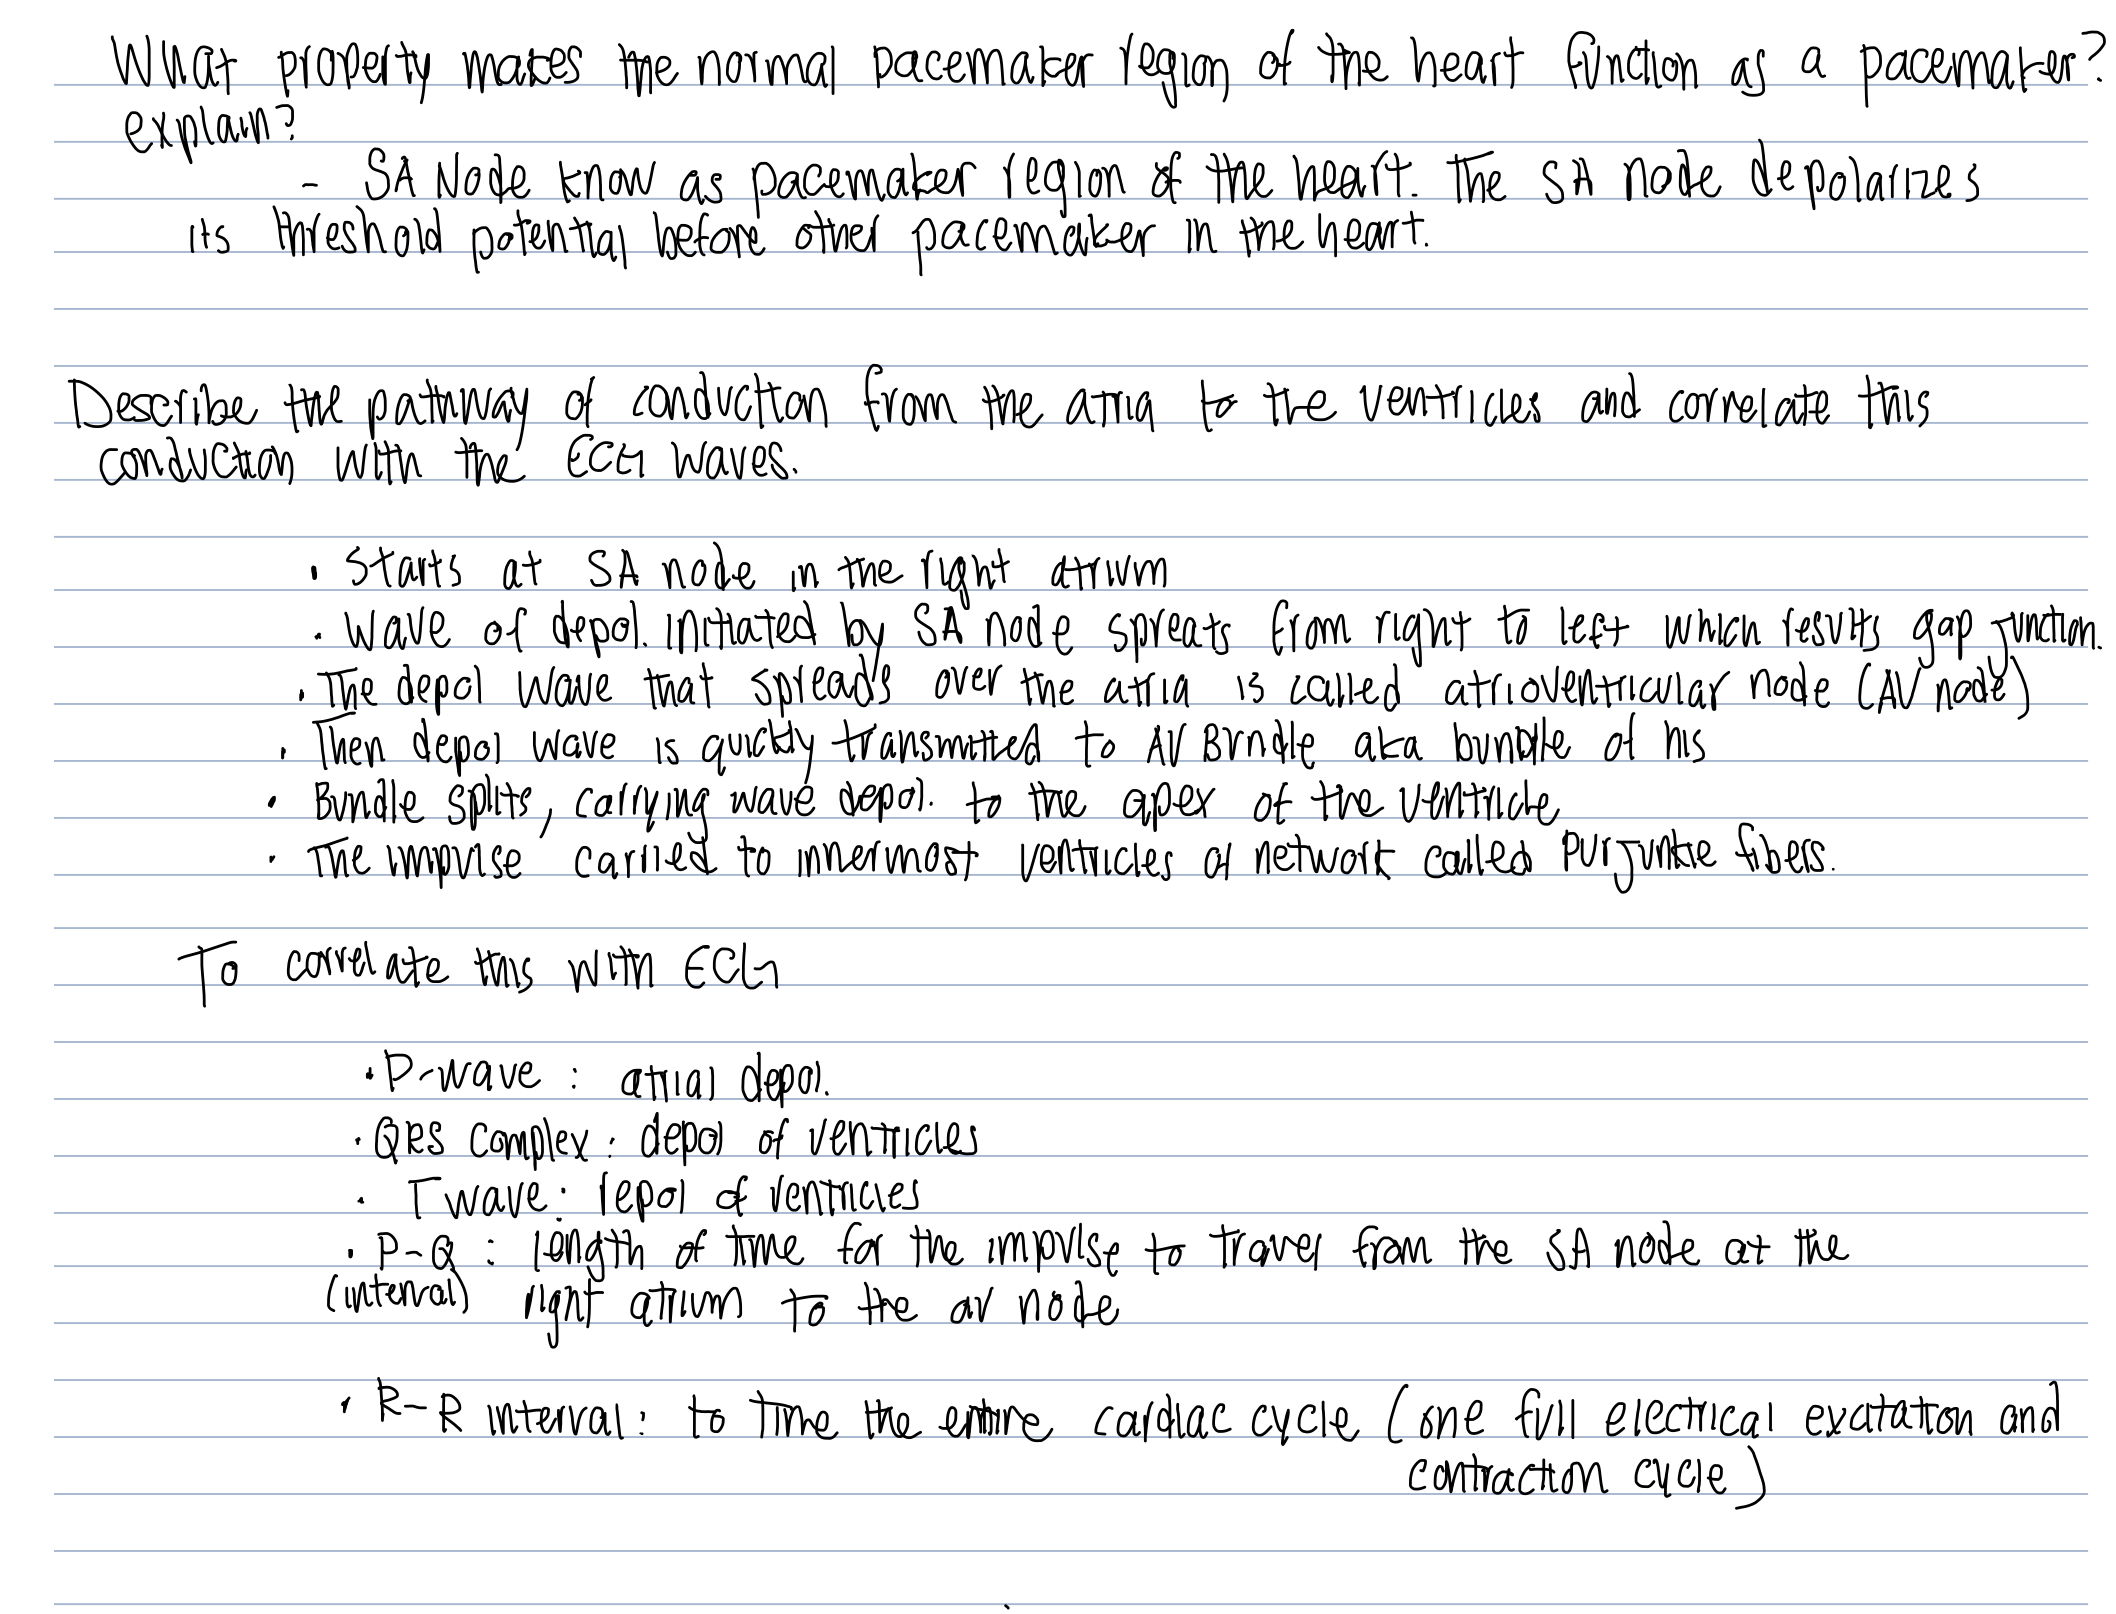 What property makes the normal pacemaker region of the heart function as a pacemaker?
explain?
- SA Node know as pacemaker region of the heart. The SA node depolarizes
its threshold potential before other pacemaker in the heart.
Describe the pathway of conduction from the atria to the ventricles and correlate this
conduction with the ECG waves.
• Starts at SA node in the right atrium
• Wave of depol. initiated by SA node spreats from right to left which results gap junction.
• The depol wave that spreads over the atria is called atrioventricular node (AV node)
• Then depol wave is quickly transmitted to AV Bundle aka bundle of his
• Bundle splits, carrying wave depol. to the apex of the ventricle
• The impulse carried to innermost ventricles of network called purjunkie fibers.
To correlate this with ECG
• P-wave : atrial depol.
• QRS complex : depol of ventricles
• T wave : repol of ventricles
• P-Q : length of time for the impulse to travel from the SA node at the
(interval) right atrium to the av node
• R-R interval : to time the entire cardiac cycle (one full electrical excitation and
contraction cycle)